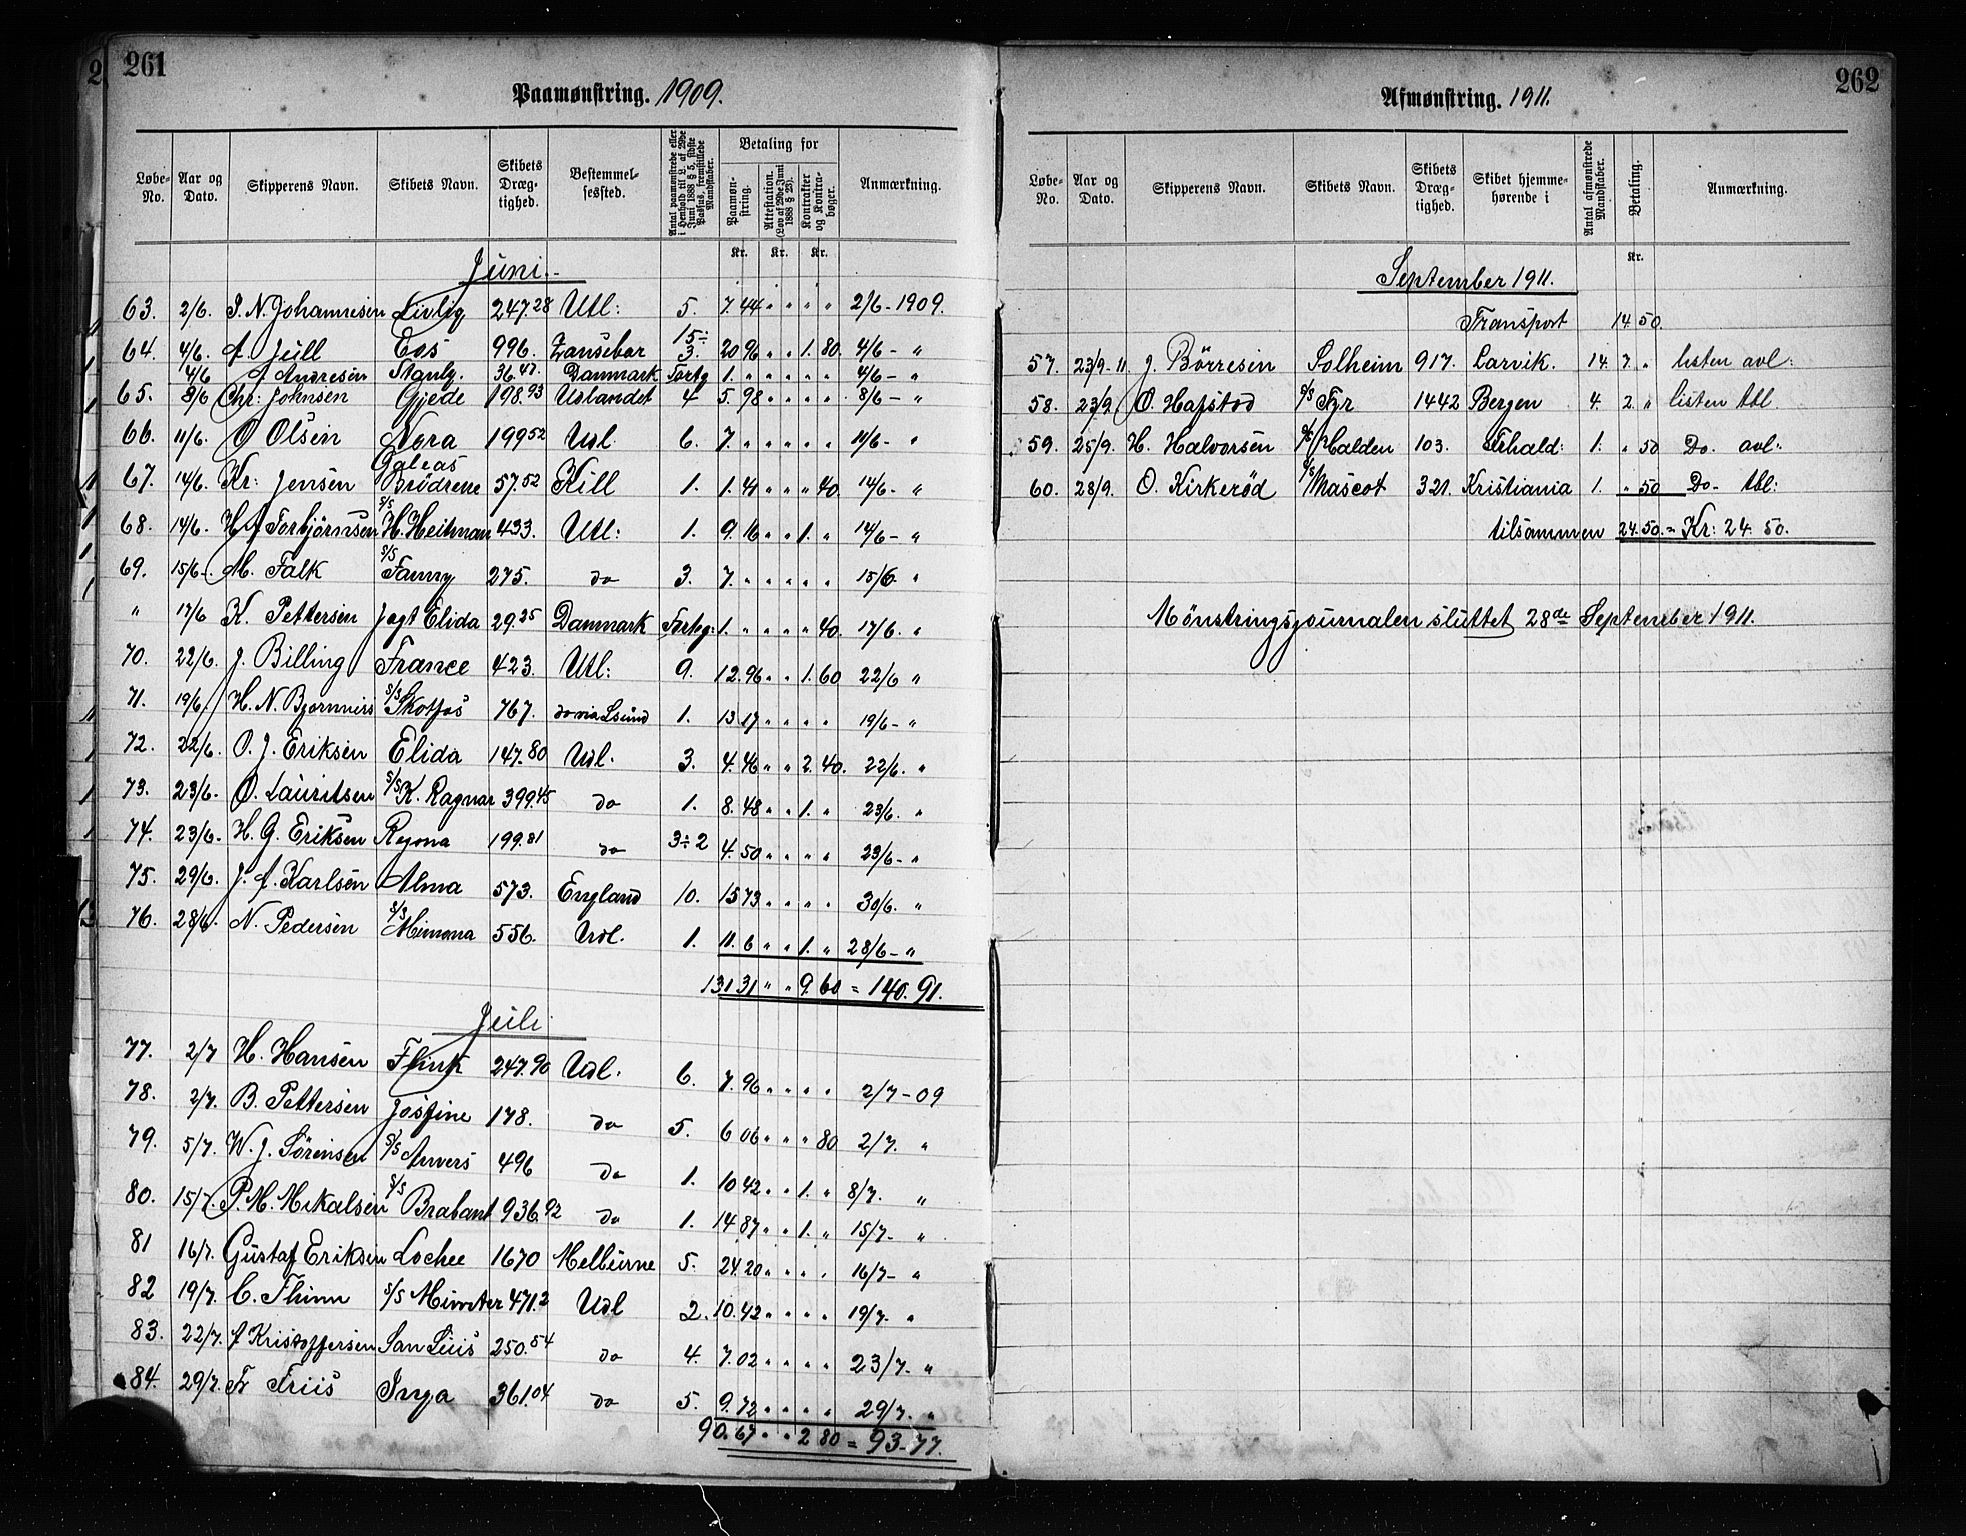 261
Paamønstring. 1909.
Løbe-No. | Aar og Dato. | Skipperens Navn. | Skibets Navn. | Skibets Dræg-tighed. | Bestemmel-sessted. | Antal paamønstrede eller i Henhold til L. af 29de Juni 1888 § 5, sidste Passus, fremstillede Mandskaber. | Betaling for | Paamøn-string. | Attestation. (Lov af 29de Juni 1888 § 23). | Kontrakter og Kontra-bøger. | Anmærkning.
Kr. Kr. Kr.
Juni.
63. 2/6. J. N. Johannesen Livlig 247.28 Utl: 5. 7.44 " " " " 2/6-1909.
64. 4/6. A. Juell Eos 996. Zansebar 15÷3. 20 96 " " 1. 80. 4/6- "
4/6 A Andresen Stanly. 36.47. Danmark Fortg 1. " " " " " 4/6- "
65. 8/6 Chr: Johnsen Gjede 198.93 Udlandet 4 5. 98 " " " " 8/6- "
66. 11/6. O Olsen Nora 199 52 Udl 6. 7. " " " " " 11/6- "
67. 14/6. Kr: Jensen Galeas Brødrene 57.52 Kill 1. 1. 41 " " " 40. 14/6- "
68. 14/6. H A Torbjörnsen S/S H. Heitman 433. Utl: 1. 9. 16 " " 1. " 14/6- "
69. 15/6- M. Falk S/S Fanny 275. do 3. 7. " " " " " 15/6. "
" 17/6 K. Pettersen Jagt Elida 29.25 Danmark Forteg: 1. " " " " 40. 17/6. "
70. 22/6. J. Billing France 423. Utl: 9. 12.96 " " 1. 60 22/6 "
71. 19/6. H. N. S/S Skotfos 767. do via Lsund 1. 13 17 " " " " 19/6- "
72. 22/6. O. J. Eriksen Elida 147.80 Udl. 3. 4.46 " " 2. 40. 22/6. "
73. 23/6. O. Lauritsen S/S K. Ragnar 399.45 do 1. 8.48 " " 1. " 23/6. "
74. 23/6. H. G. Eriksen Regona 199.81 do 3÷2 4.50 " " " " 23/6- "
75. 29/6. J. A. Karlsen Alma 573. England 10. 15 73 " " " " 30/6. "
76. 28/6. N. Pedersen S/S Mimona 556. Udl. 1. 11. 6 " " 1. " 28/6- "
131 31 " " 9. 60 = 140. 91.
Juli
77. 2/7 H. Hansen Flink 247.90 Udl. 6. 7. 96 " " " " 2/7-09
78. 2/7. B. Pettersen Josfine 178. do 5. 6 06 " " " 80 2/7. "
79. 5/7. W. J. Sörensen S/S Anvers 496 do 1. 10 42 " " 1. " 8/7. "
80. 15/7. P. M. Mikalsen S/S Brabant 936.92 do 1. 14 87 " " 1. " 15/7- "
81 16/7. Gustaf Eriksen Lochee 1670 Melburne 5. 24. 20 " " " " 16/7- "
82 19/7. C. Thinn S/S Minster 471.2 Udl 2. 10. 42 " " " " 19/7. "
83. 22/7. A Kristoffersen San Luis 250.54 do 4. 7. 02 " " " " 23/7. "
84. 29/7. Fr Friis Inga 361.04 do 5. 9. 72 " " " " 29/7. "
90. 67 " " 2 80 = 93-77.
262
Afmønstring. 1911.
Løbe-No. | Aar og Dato. | Skipperens Navn. | Skibets Navn. | Skibets Dræg-tighed. | Skibet hjemme-hørende i | Antal afmønstrede Mandskaber. | Betaling. | Anmærkning.
Kr.
September 1911.
Transport 14 50.
57. 23/9-11 J. Börresen Solheim 917. Larvik. 14. 7. " listen avl:
58. 23/9. O. Hafstod S/S Fyr 1442 Bergen 4. 2. " listen tbl
59. 25/9. H. Halvorsen S/S Halden 103. Frhald: 1. " 50 Do. avl:
60. 28/9. O. Kirkeröd S/S Mascot 321. Kristiania 1. " 50 Do- tbl:
tilsammen 24.50.= Kr: 24. 50.
Mönstringsjournalen sluttet 28de September 1911.